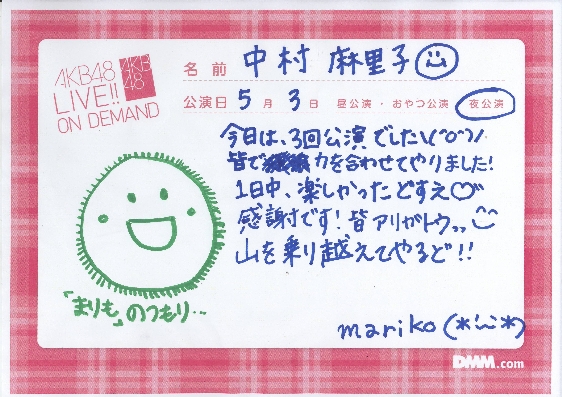 AKB48
LIVE!!
ON DEMAND
AKB
48
名前 中村 麻里子
公演日 5月 3日 昼公演・おやつ公演 夜公演
今日は、3回公演でした\(^o^)/
皆で 力を合わせてやりました!
1日中、楽しかったどすえ♡
感謝です!皆アリがトウッッ
山を乗り越えてやるど!!
「まりも」のつもり・・
mariko (*'ω'*)
DMM.com